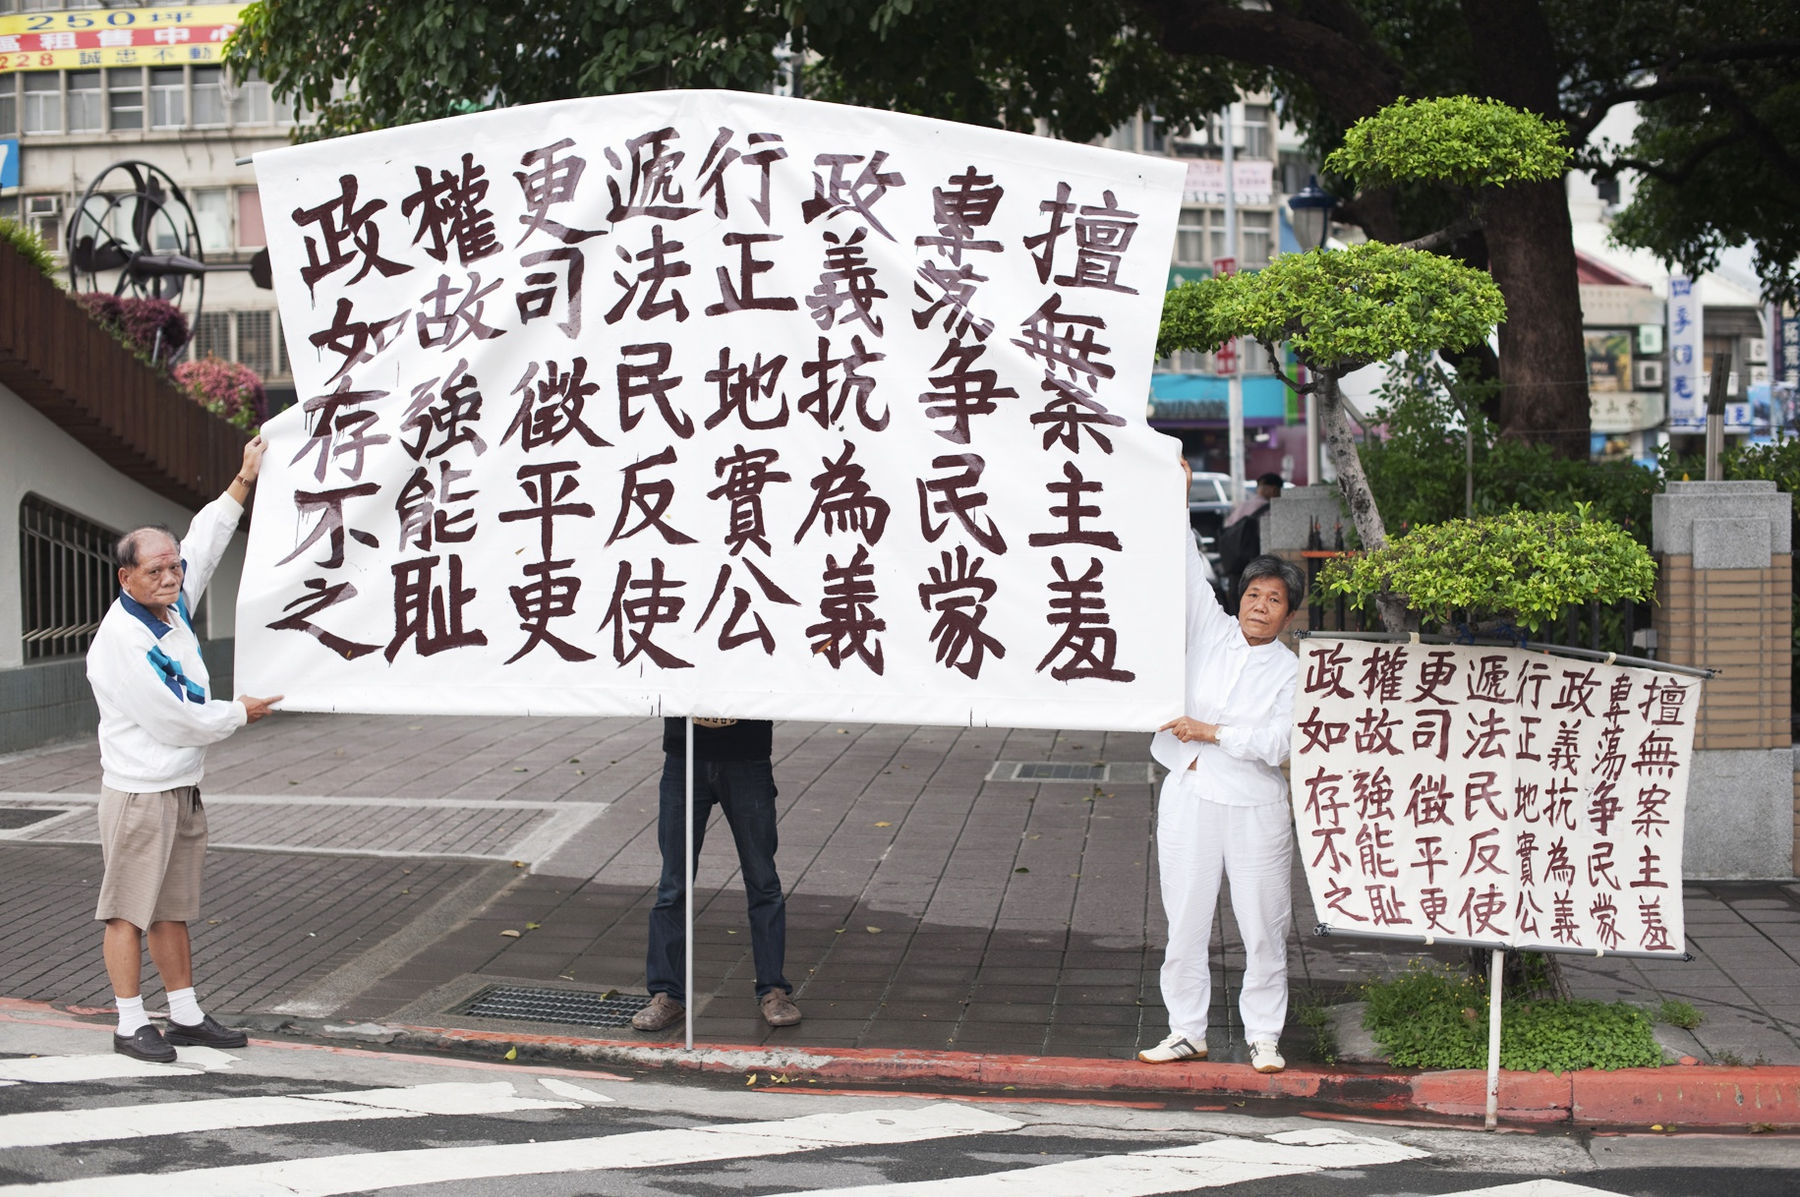 250坪
區租售中心
228 誠忠不動
擅無案主羞
專蕩爭民蒙
政義抗為義
行正地實公
遞法民反使
更司徵平更
權故強能恥
政如存不之
擅無案主羞
專蕩爭民蒙
政義抗為義
行正地實公
遞法民反使
更司徵平更
權故強能恥
政如存不之